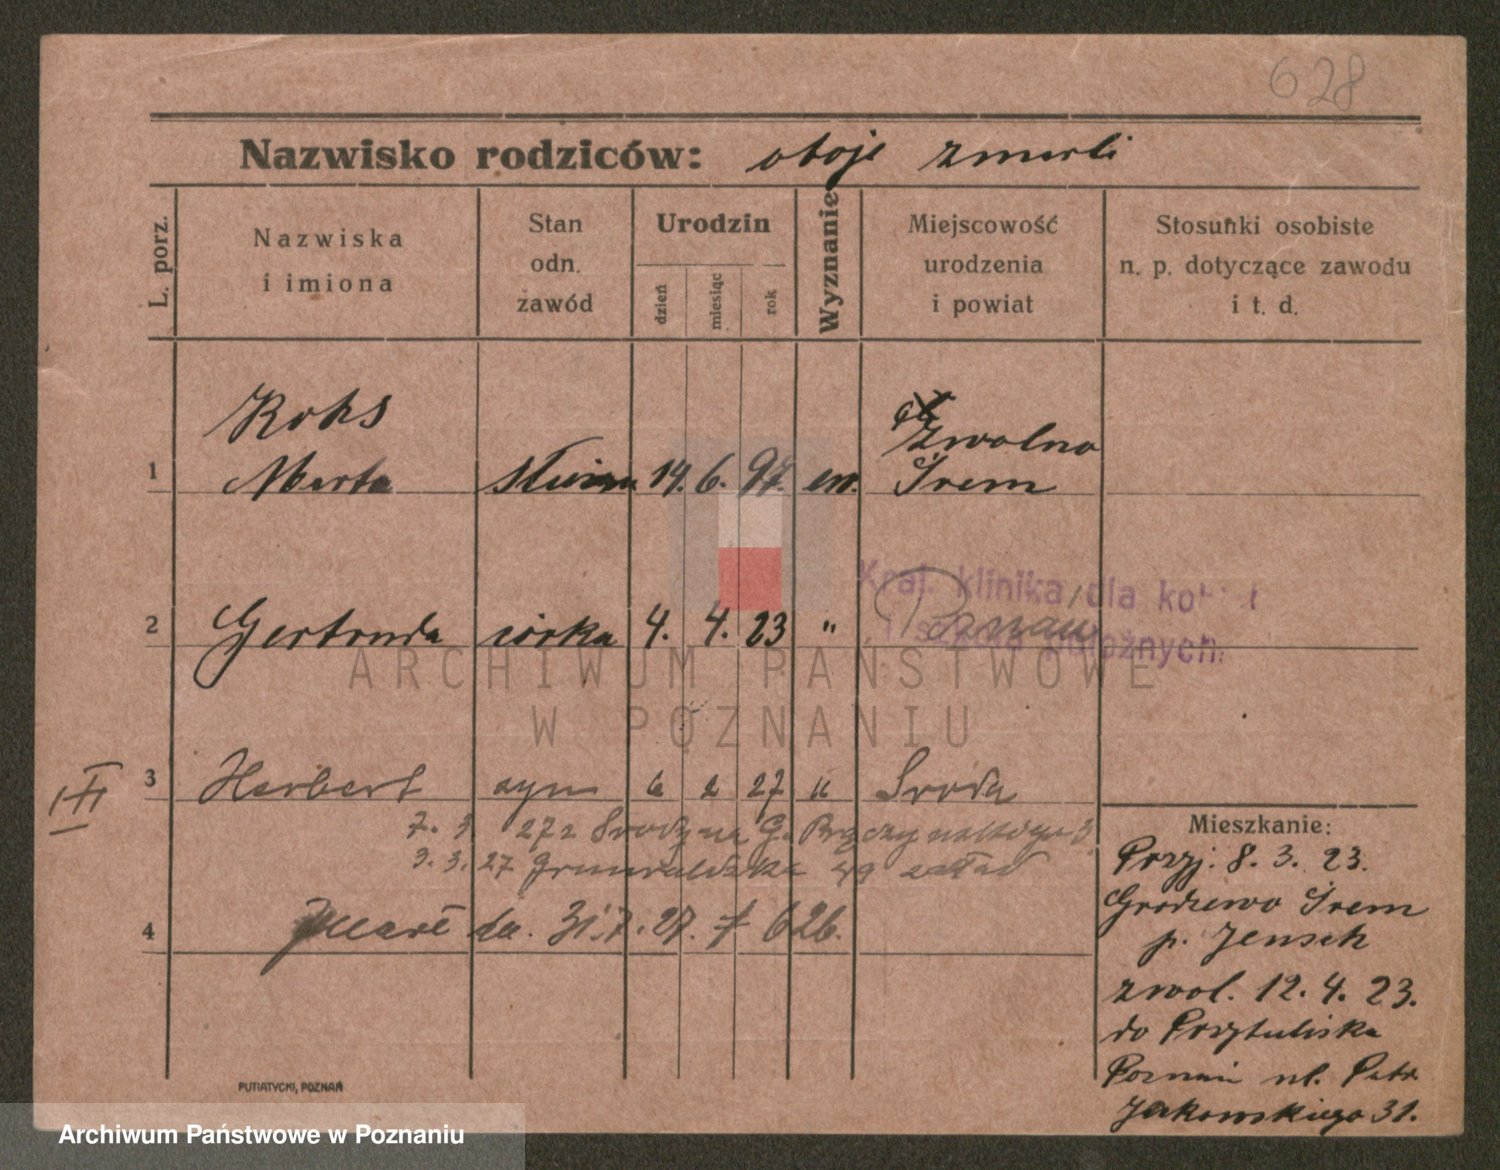 628
Nazwisko rodziców: oboje zmarli
L. porz.
Nazwiska
i imiona
Stan
odn.
zawód
Urodzin
dzień
miesiąc
rok
Wyznanie
Miejscowość
urodzenia
i powiat
Stosuńki osobiste
n. p. dotyczące zawodu
i t. d.
Rohs
Zwolno
1 Marta 14. 6. 97. ew. Śrem
Kraj. klinika dla kobiet
2 Gertruda córka 4. 4. 23 " Poznań
położnych
III
3 Herbert syn 6 2 27 " Sroda
7. 3 27 z Srody na G. 3
3. 3. 27 Grunwaldzka 49 zakład
4 da. 31.7.27. 626.
Mieszkanie:
Przyj. 8. 3. 23.
Grodzewo Śrem
p. Jensch
zwol. 12. 4. 23.
do Przytuliska
Poznań ul. Patr.
Jackowskiego 31.
PUTIATYCKI, POZNAŃ
ARCHIWUM PAŃSTWOWE
W POZNANIU
Archiwum Państwowe w Poznaniu